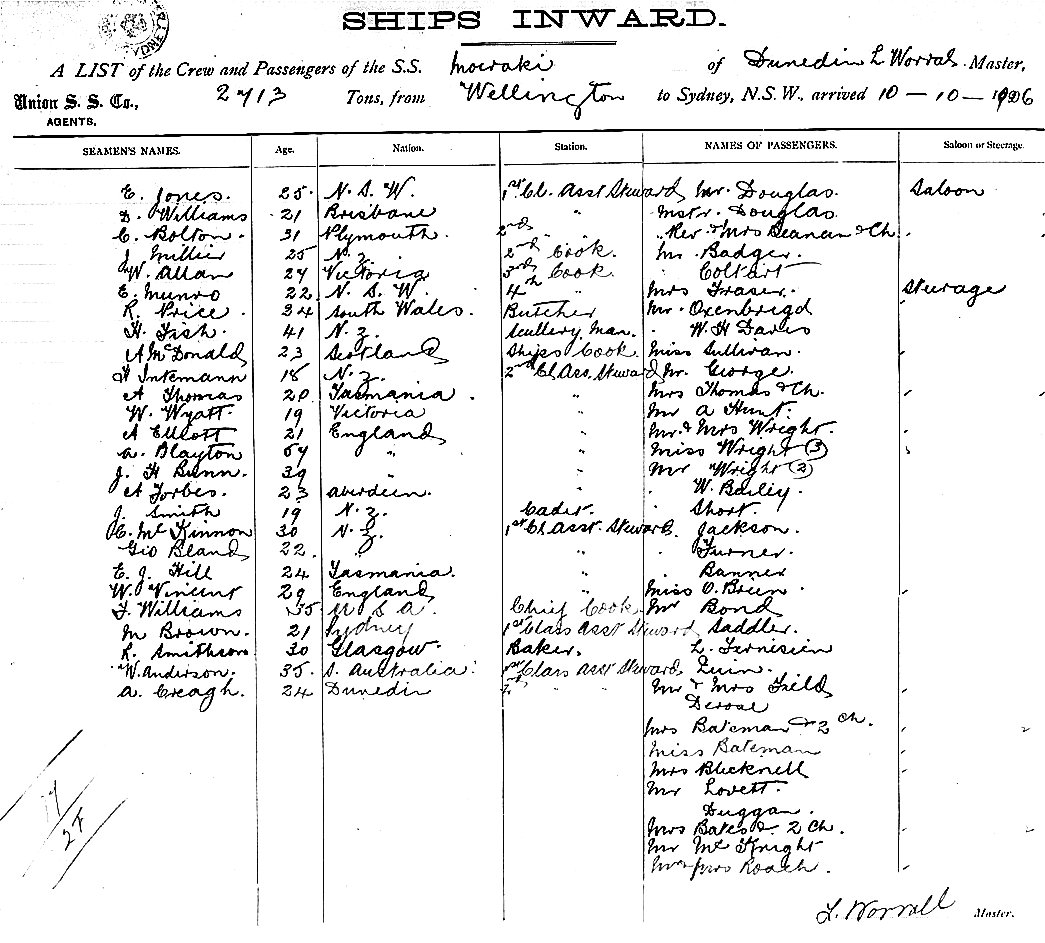 SYDNEY
SHIPS INWARD.
A LIST of the Crew and Passengers of the S.S. Moeraki of Dunedin L Worrall Master,
Union S. S. Co., 2713 Tons, from Wellington to Sydney, N.S.W., arrived 10 - 10 - 1906
AGENTS.
SEAMEN'S NAMES. Age. Nation. Station. NAMES OF PASSENGERS. Saloon or Steerage.
E. Jones. 25. N. S. W. 1st Cl. Asst Steward Mr. Douglas. Saloon
D. Williams 21 Brisbane " Mstr. Douglas
C. Bolton. 31 Plymouth. 2nd " Rev & Mrs & Ch
J Millier 25 N. Z. 2nd Cook. Mr. Badger.
W. Allan 24 Victoria 3rd Cook Coltart
E. Munro 22. N. S. W. 4th " Mrs Fraser. Steerage
R. Price 34 South Wales. Butcher Mr. Oxenbrigd
H. Fish. 41 N. Z. Scullery Man. W. H Davis
A McDonald 23 Scotland Ships Cook Miss Sullivan.
H Inkmann 18 N. Z. 2nd Cl Ass. Steward Mr. George.
A Thomas 20 Tasmania. " Mrs Thomas & Ch.
W. Wyatt. 19 Victoria " Mr A Hunt.
A Elliott 21 England " Mr & Mrs Wright.
A. Blayton 64 " " Miss Wright (3)
J. H Bunn. 39 " " Mr Wright (2)
A Forbes. 23 Aberdeen. " W. Bailey.
J. Smith 19 N. Z. Cadet. Short.
C. McKinnon 30 N. Z. 1st Cl Asst. Steward. Jackson.
Geo Bland 22. " " Turner.
E. J. Hill 24 Tasmania. " Banner
W. Vincent 29 England " Miss O. Brien
F. Williams 35 U S A. Chief Cook Mr Bond
M Brown. 21 Sydney 1st Class Asst Steward Saddler.
R. Smithson 30 Glasgow. Baker. L.
W. Anderson. 35. S. Australia. 1st Class Asst Steward Quin.
A. Creagh. 24 Dunedin 2nd " " Mr & Mrs Field
Mrs Bateman & 2 Ch.
Miss Bateman
Mrs Blicknell
Mr Lovett.
Duggan.
Mrs Bates & 2 Ch.
Mr McKnight
Mr & Mrs Roach.
L. Worrall Master.